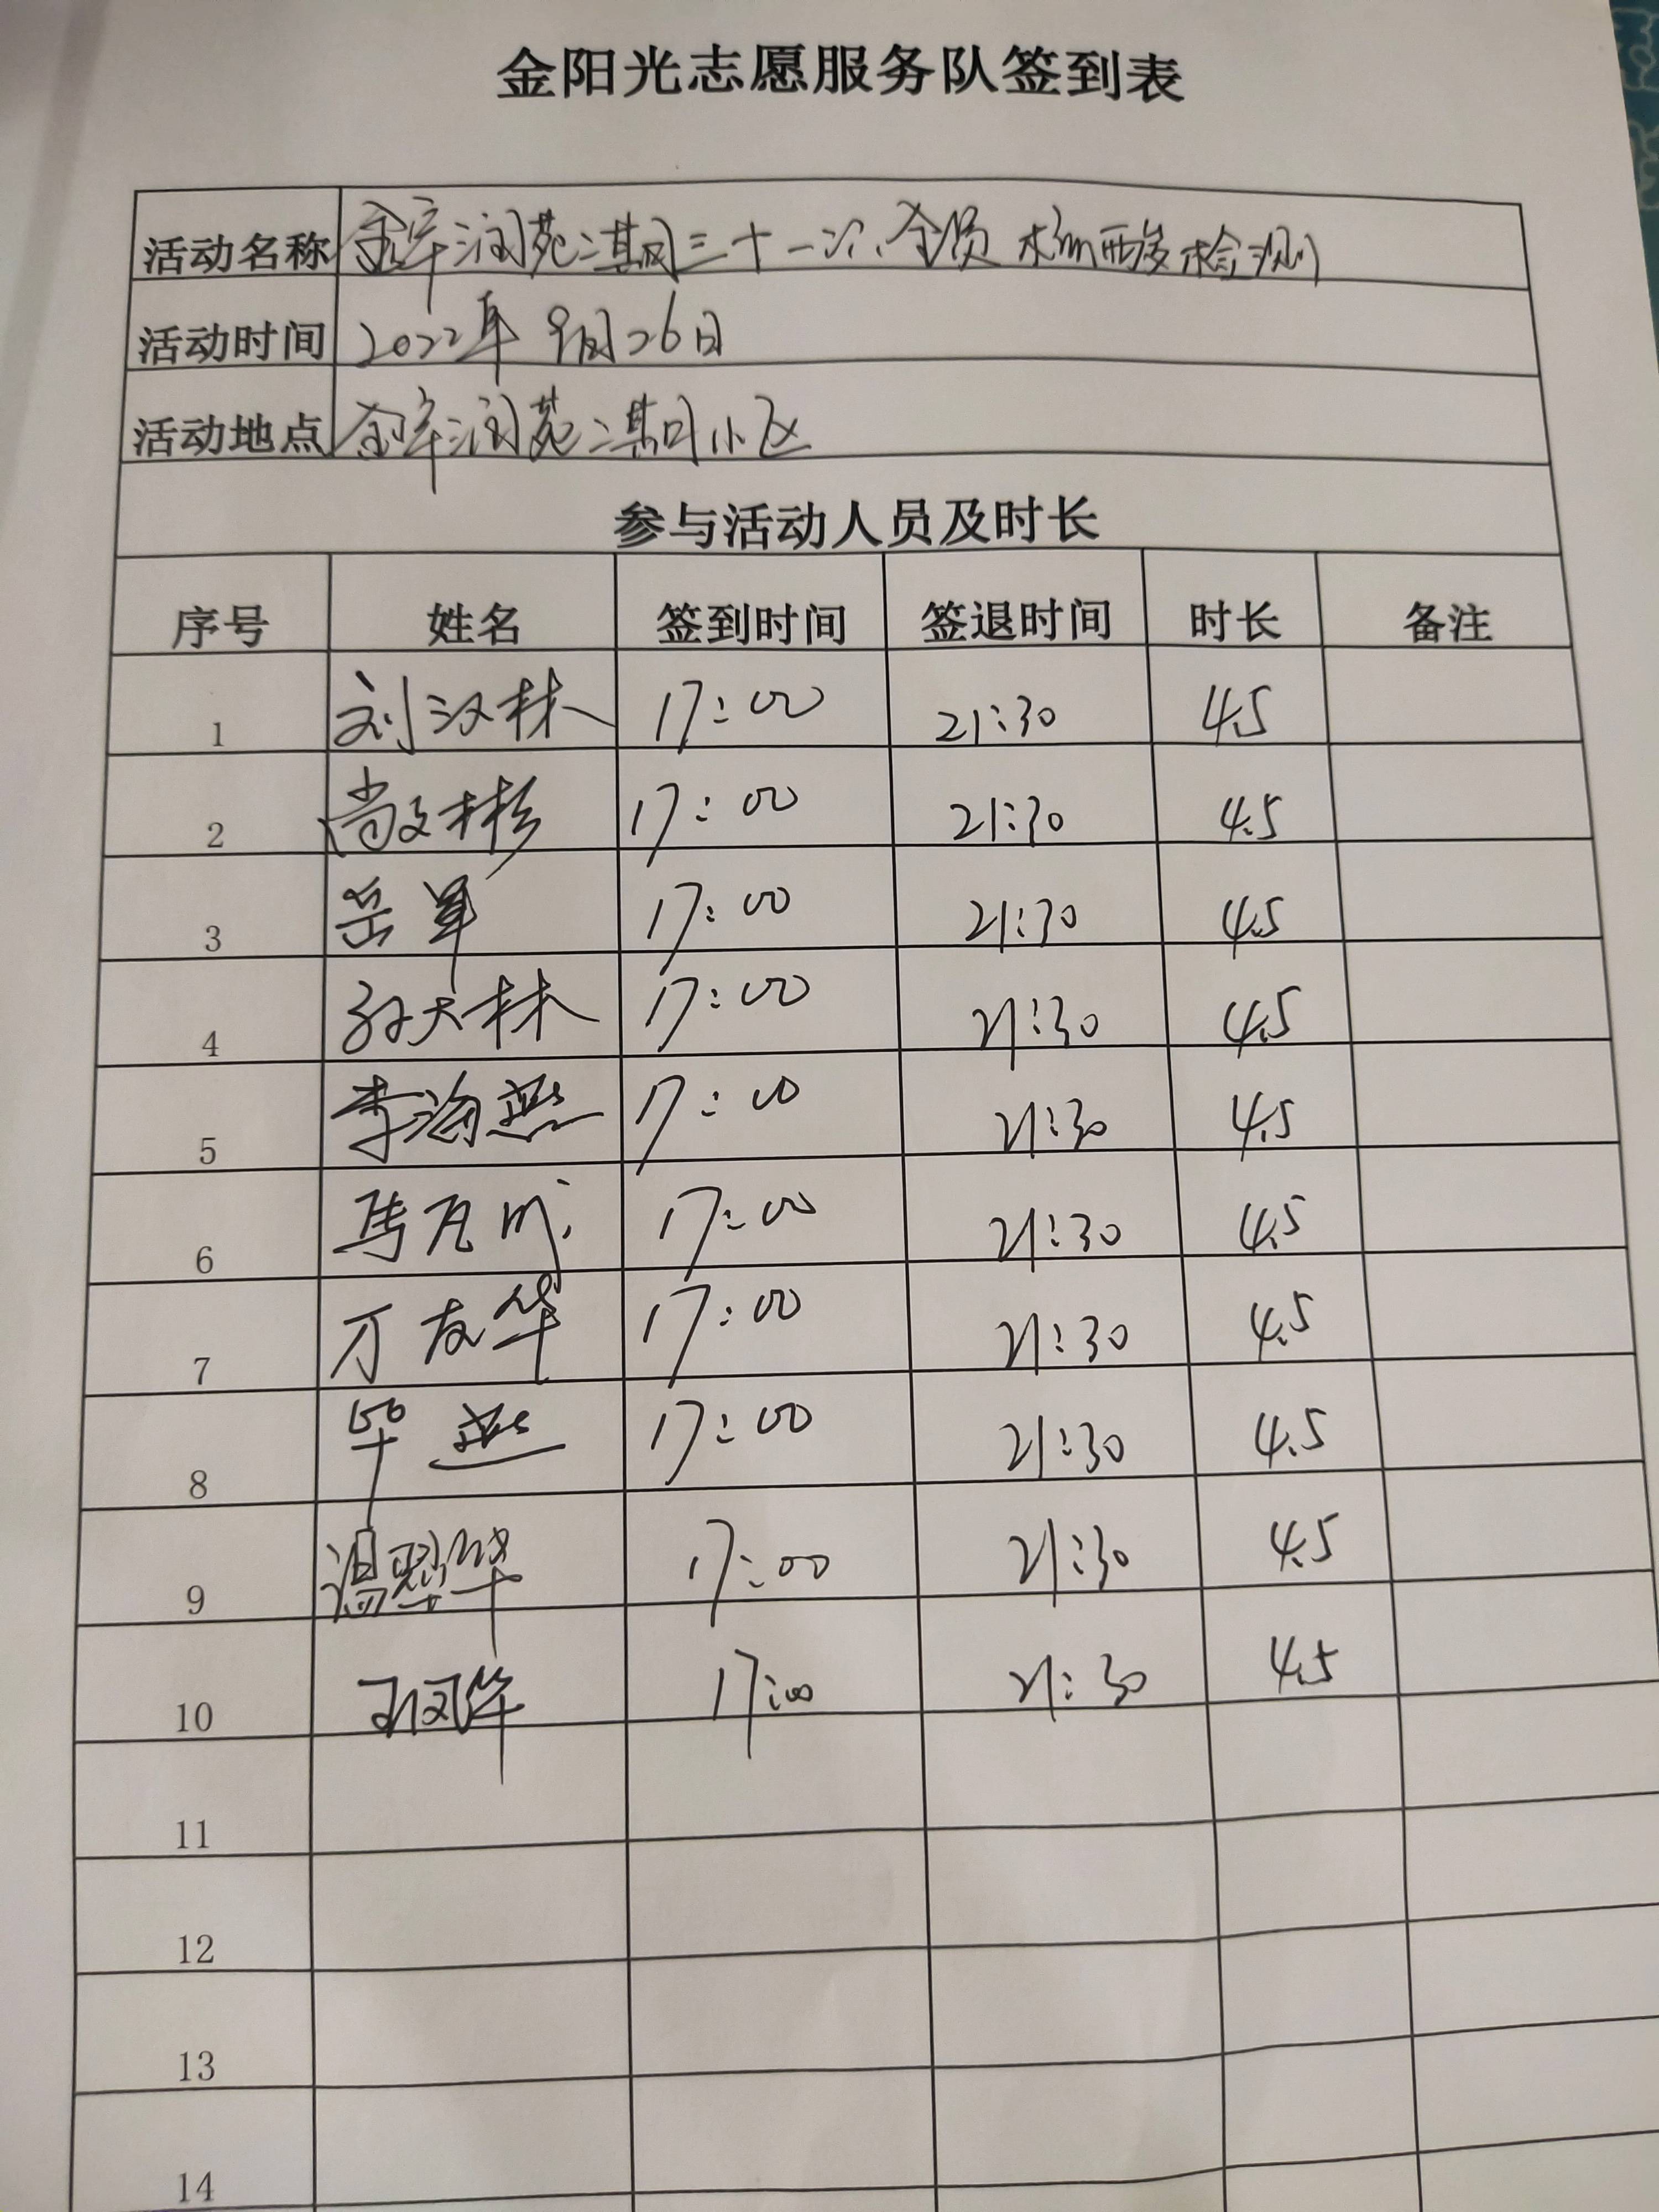 金阳光志愿服务队签到表
活动名称 金华润苑二期三十一次全员核酸检测
活动时间 2022年9月26日
活动地点 金华润苑二期小区
参与活动人员及时长
序号 姓名 签到时间 签退时间 时长 备注
1 刘汉林 17:00 21:30 4.5
2 尚文彬 17:00 21:30 4.5
3 岳军 17:00 21:30 4.5
4 孙天林 17:00 21:30 4.5
5 李海燕 17:00 21:30 4.5
6 17:00 21:30 4.5
7 万友华 17:00 21:30 4.5
8 毕燕 17:00 21:30 4.5
9 17:00 21:30 4.5
10 17:00 21:30 4.5
11
12
13
14